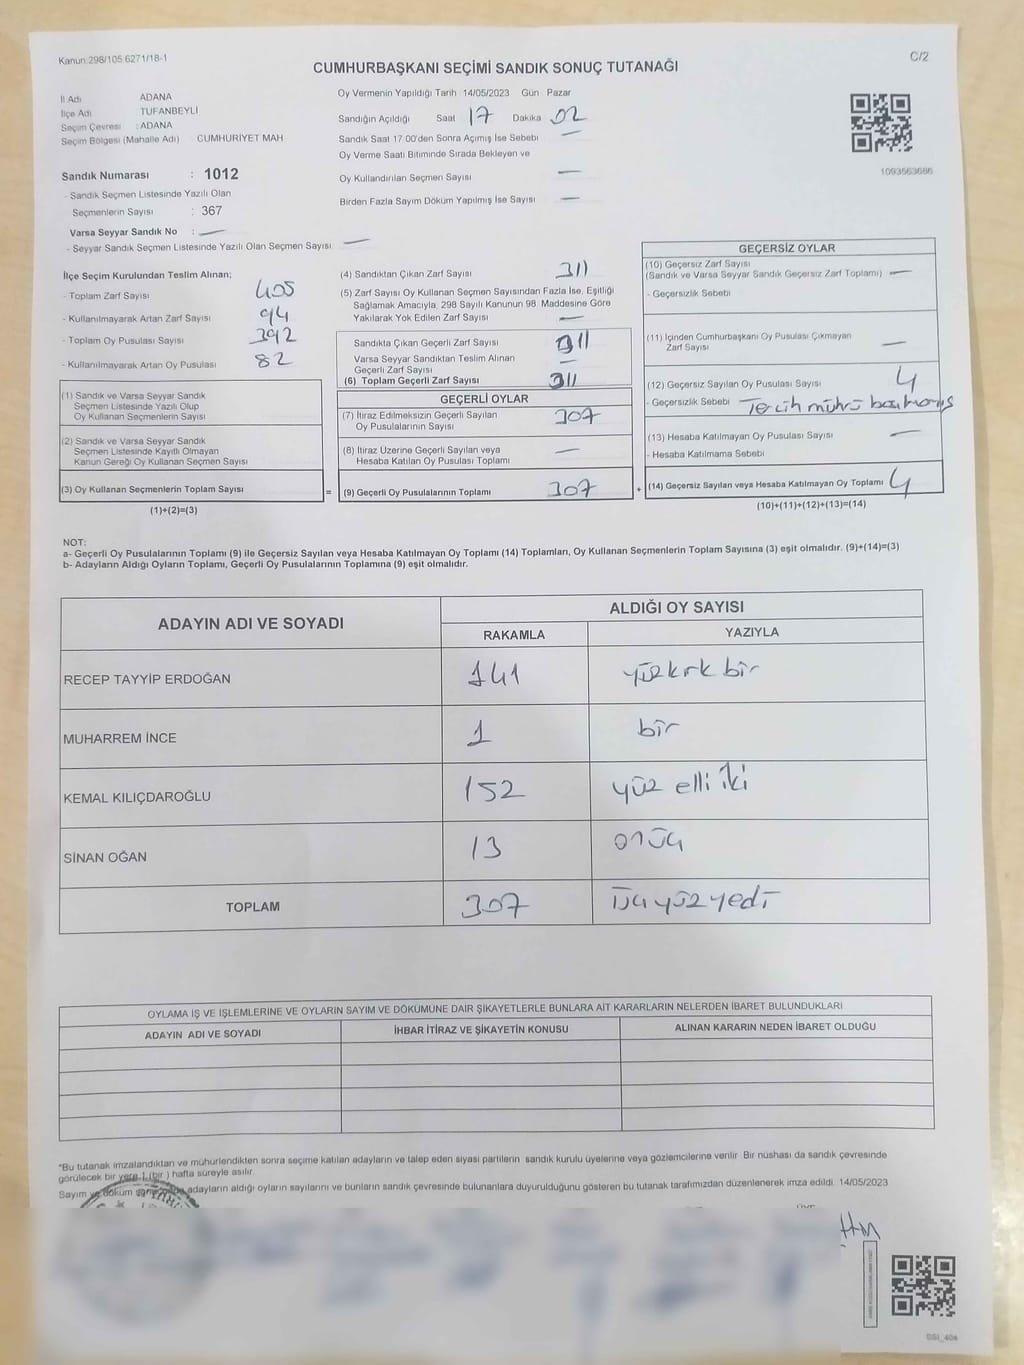 Kanun:298/105 6271/18-1
C/2
CUMHURBAŞKANI SEÇİMİ SANDIK SONUÇ TUTANAĞI
İl Adı ADANA
İlçe Adı TUFANBEYLİ
Seçim Çevresi : ADANA
Seçim Bölgesi (Mahalle Adı) CUMHURİYET MAH
Sandık Numarası : 1012
- Sandık Seçmen Listesinde Yazılı Olan
Seçmenlerin Sayısı : 367
Varsa Seyyar Sandık No : —
- Seyyar Sandık Seçmen Listesinde Yazılı Olan Seçmen Sayısı —
Oy Vermenin Yapıldığı Tarih 14/05/2023 Gün Pazar
Sandığın Açıldığı Saat 17 Dakika 02
Sandık Saat 17 00'den Sonra Açımış İse Sebebi —
Oy Verme Saati Bitiminde Sırada Bekleyen ve
Oy Kullandırılan Seçmen Sayısı —
Birden Fazla Sayım Döküm Yapılmış İse Sayısı —
1093563686
İlçe Seçim Kurulundan Teslim Alınan;
- Toplam Zarf Sayısı 405
- Kullanılmayarak Artan Zarf Sayısı 94
- Toplam Oy Pusulası Sayısı 392
- Kullanılmayarak Artan Oy Pusulası 82
(1) Sandık ve Varsa Seyyar Sandık
Seçmen Listesinde Yazılı Olup
Oy Kullanan Seçmenlerin Sayısı
(2) Sandık ve Varsa Seyyar Sandık
Seçmen Listesinde Kayıtlı Olmayan
Kanun Gereği Oy Kullanan Seçmen Sayısı
(3) Oy Kullanan Seçmenlerin Toplam Sayısı
=
(1)+(2)=(3)
(4) Sandıktan Çıkan Zarf Sayısı 311
(5) Zarf Sayısı Oy Kullanan Seçmen Sayısından Fazla İse, Eşitliği
Sağlamak Amacıyla, 298 Sayılı Kanunun 98. Maddesine Göre
Yakılarak Yok Edilen Zarf Sayısı —
Sandıkta Çıkan Geçerli Zarf Sayısı 311
Varsa Seyyar Sandıktan Teslim Alınan
Geçerli Zarf Sayısı —
(6) Toplam Geçerli Zarf Sayısı 311
GEÇERLİ OYLAR
(7) İtiraz Edilmeksizin Geçerli Sayılan
Oy Pusulalarının Sayısı 307
(8) İtiraz Üzerine Geçerli Sayılan veya
Hesaba Katılan Oy Pusulası Toplamı —
(9) Geçerli Oy Pusulalarının Toplamı 307
+
GEÇERSİZ OYLAR
(10) Geçersiz Zarf Sayısı
(Sandık ve Varsa Seyyar Sandık Geçersiz Zarf Toplamı) —
- Geçersizlik Sebebi
(11) İçinden Cumhurbaşkanı Oy Pusulası Çıkmayan
Zarf Sayısı —
(12) Geçersiz Sayılan Oy Pusulası Sayısı 4
- Geçersizlik Sebebi Tercih mührü basılmamış
(13) Hesaba Katılmayan Oy Pusulası Sayısı —
- Hesaba Katılmama Sebebi
(14) Geçersiz Sayılan veya Hesaba Katılmayan Oy Toplamı 4
(10)+(11)+(12)+(13)=(14)
NOT:
a- Geçerli Oy Pusulalarının Toplamı (9) ile Geçersiz Sayılan veya Hesaba Katılmayan Oy Toplamı (14) Toplamları, Oy Kullanan Seçmenlerin Toplam Sayısına (3) eşit olmalıdır. (9)+(14)=(3)
b- Adayların Aldığı Oyların Toplamı, Geçerli Oy Pusulalarının Toplamına (9) eşit olmalıdır.
ADAYIN ADI VE SOYADI
ALDIĞI OY SAYISI
RAKAMLA YAZIYLA
RECEP TAYYİP ERDOĞAN 141 yüzkırk bir
MUHARREM İNCE 1 bir
KEMAL KILIÇDAROĞLU 152 yüz elli iki
SİNAN OĞAN 13 onüç
TOPLAM 307 üçyüzyedi
OYLAMA İŞ VE İŞLEMLERİNE VE OYLARIN SAYIM VE DÖKÜMÜNE DAİR ŞİKAYETLERLE BUNLARA AİT KARARLARIN NELERDEN İBARET BULUNDUKLARI
ADAYIN ADI VE SOYADI İHBAR İTİRAZ VE ŞİKAYETİN KONUSU ALINAN KARARIN NEDEN İBARET OLDUĞU
*Bu tutanak imzalandıktan ve mühürlendikten sonra seçime katılan adayların ve talep eden siyasi partilerin sandık kurulu üyelerine veya gözlemcilerine verilir Bir nüshası da sandık çevresinde
görülecek bir yere 1 (bir) hafta süreyle asılır.
Sayım ve döküm adayların aldığı oyların sayılarını ve bunların sandık çevresinde bulunanlara duyurulduğunu gösteren bu tutanak tarafımızdan düzenlenerek imza edildi. 14/05/2023